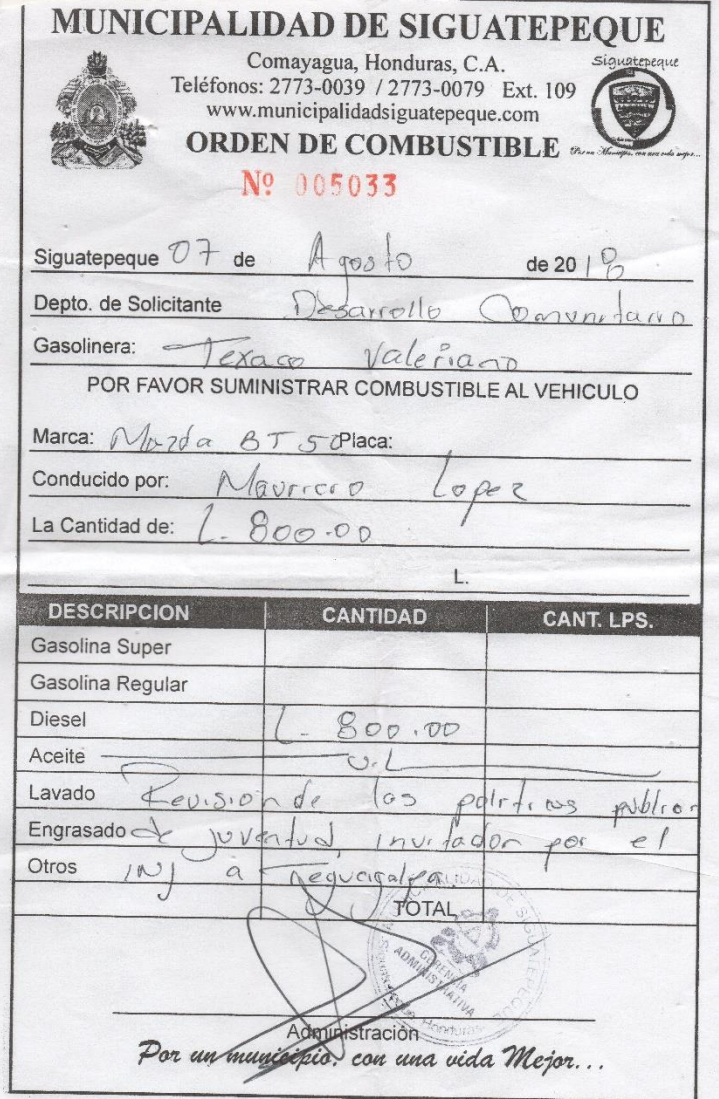 MUNICIPALIDAD DE SIGUATEPEQUE
Comayagua, Honduras, C.A.
Siguatepeque
Teléfonos: 2773-0039 / 2773-0079 Ext. 109
www.municipalidadsiguatepeque.com
ORDEN DE COMBUSTIBLE
Por un Municipio, con una vida mejor...
Nº 005033
Siguatepeque 07 de Agosto de 2018
Depto. de Solicitante Desarrollo Comunitario
Gasolinera: Texaco Valeriano
POR FAVOR SUMINISTRAR COMBUSTIBLE AL VEHICULO
Marca: Mazda BT 50 Placa:
Conducido por: Lopez
La Cantidad de: L. 800.00
L.
DESCRIPCION CANTIDAD CANT. LPS.
Gasolina Super
Gasolina Regular
Diesel L. 800.00
Aceite U.L
Lavado Revision de las politicas publicas
Engrasado de juventud, invitador por el
Otros INJ a Tegucigalpa.
TOTAL
MUNICIPALIDAD DE SIGUATEPEQUE
GERENCIA
ADMINISTRATIVA
Honduras
Administración
Por un municipio, con una vida Mejor...